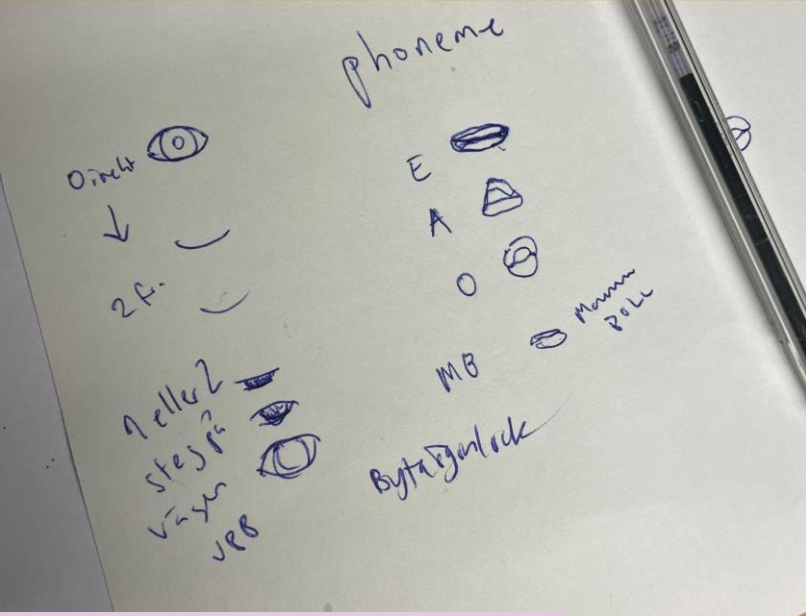 phoneme
Direkt
2 f.
1 eller 2
steg på
vägen
upp
E
A
O
MB
Mamma
BOLL
Byta ögonlock